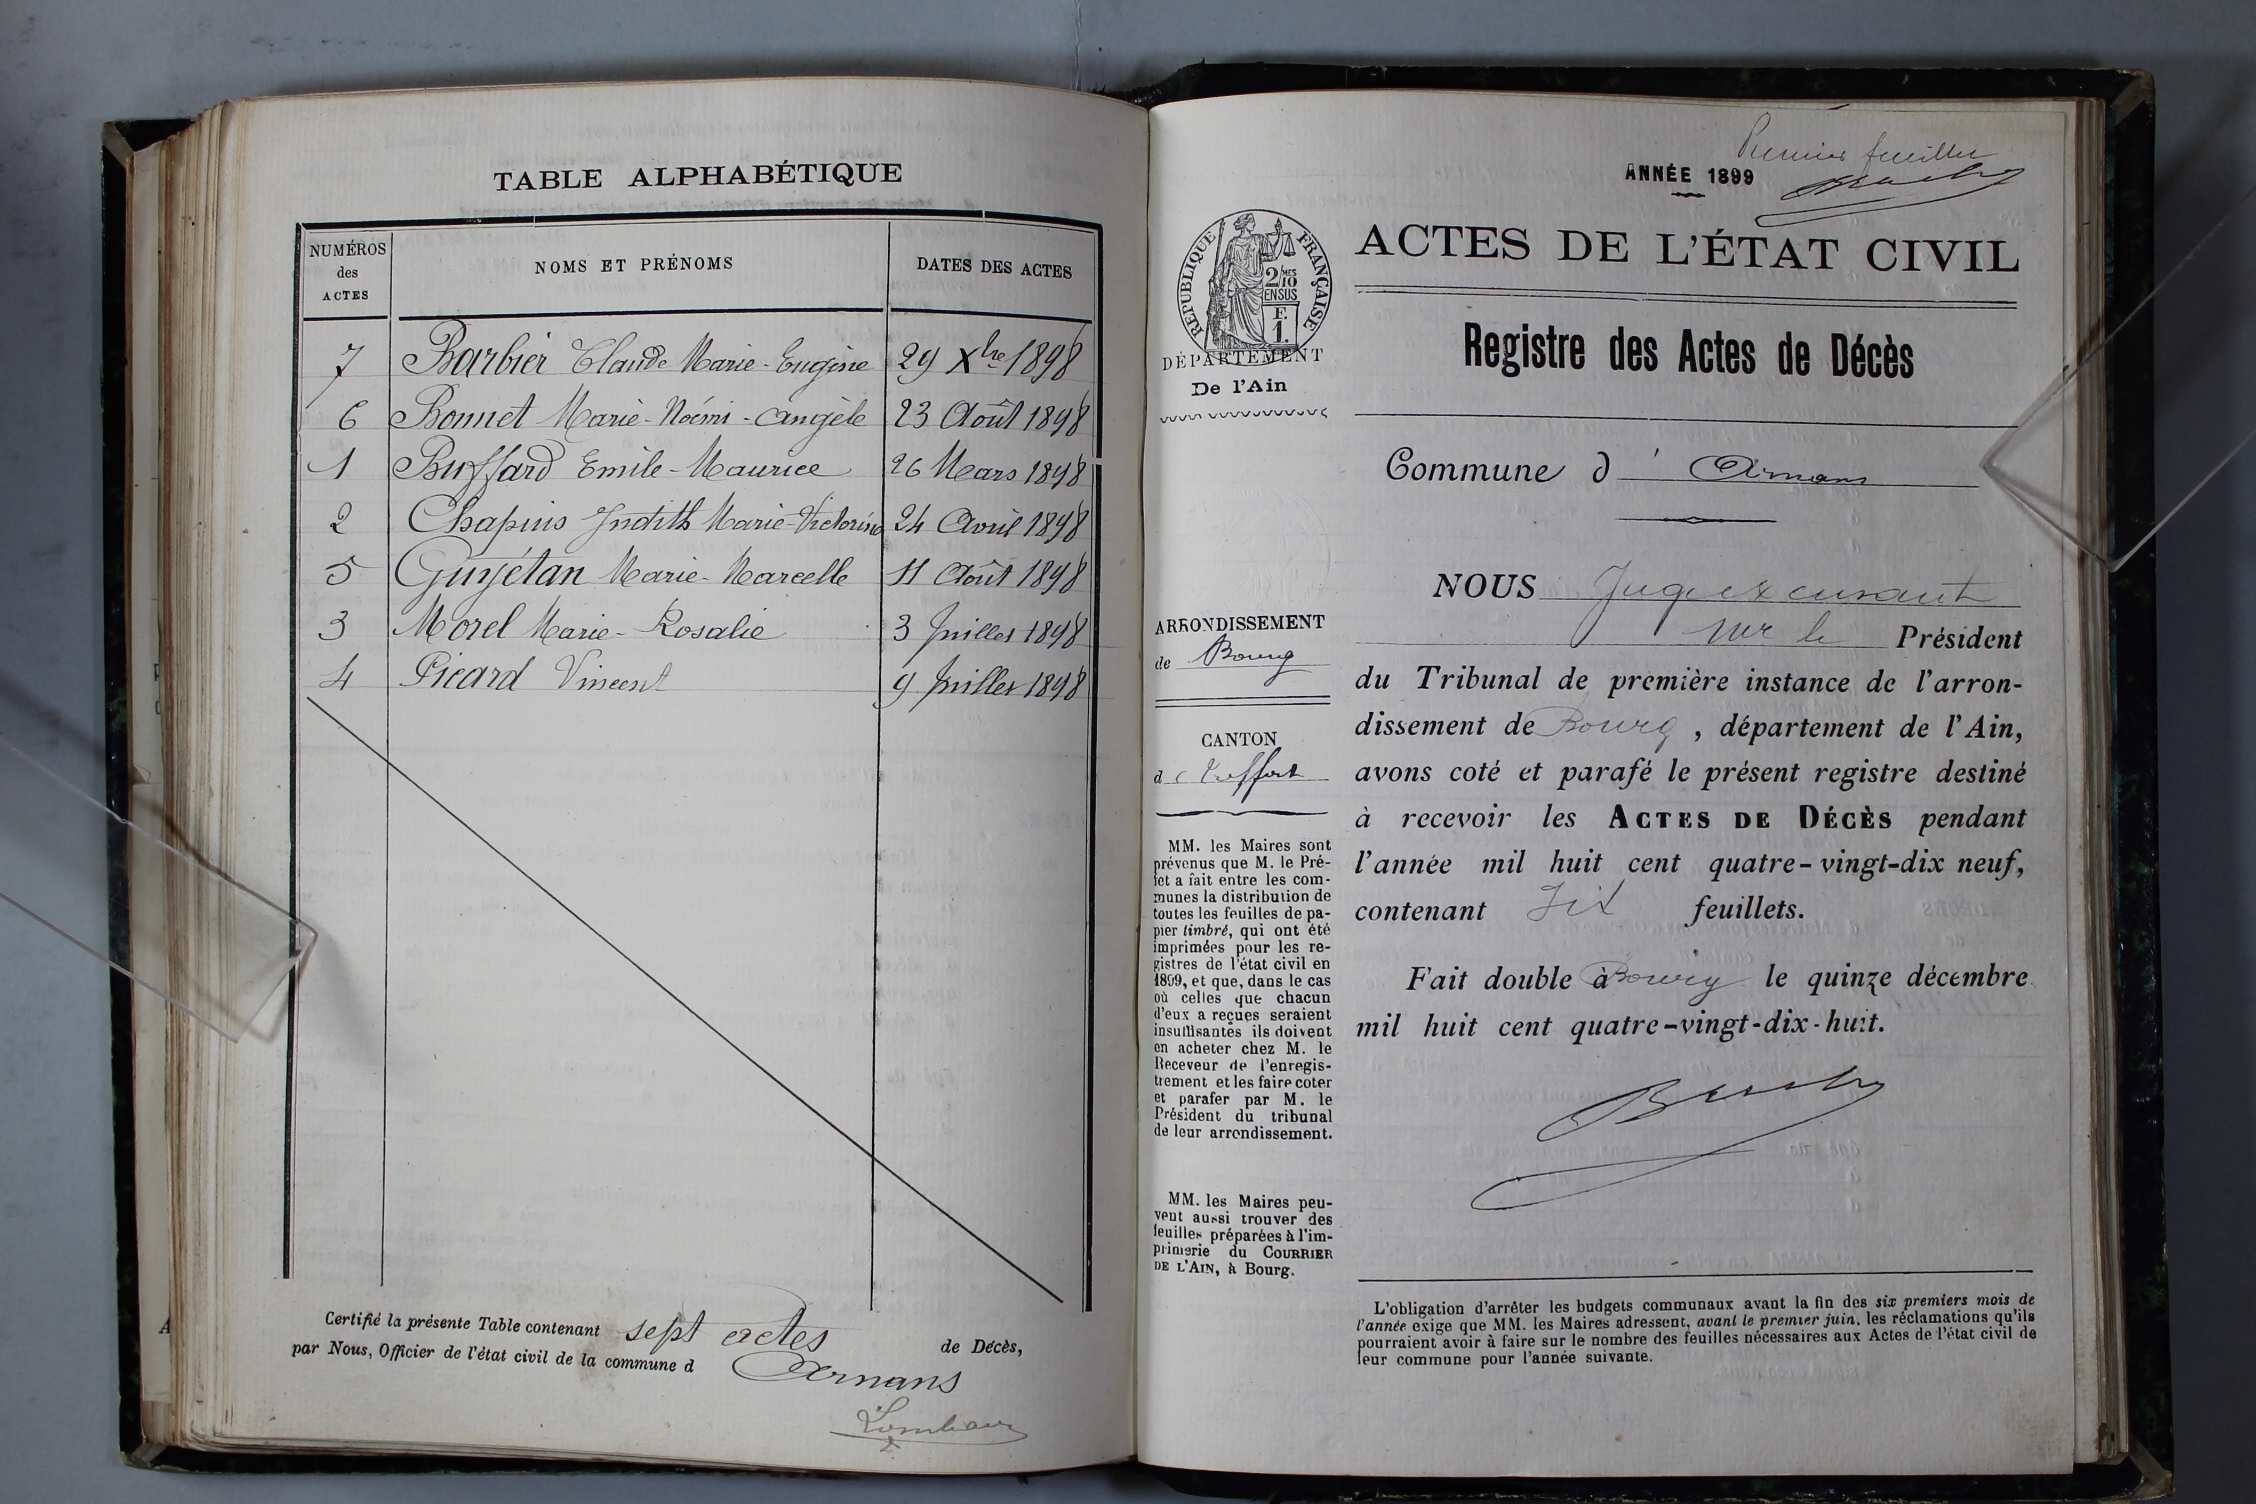 TABLE ALPHABÉTIQUE
NUMÉROS
des
ACTES
NOMS ET PRÉNOMS
DATES DES ACTES
7 Barbier Claude Marie-Eugène 29 Xbre 1898
6 Bonnet Marie-Noémi-Angèle 23 Août 1898
1 Buffard Emile-Maurice 26 Mars 1898
2 Chapuis Judith Marie-Victorine 24 Avril 1898
5 Guyétan Marie-Marcelle 11 Août 1898
3 Morel Marie-Rosalie 3 Juillet 1898
4 Picard Vincent 9 Juillet 1898
Certifié la présente Table contenant sept actes de Décès,
par Nous, Officier de l'état civil de la commune d Arnans
Premier feuillet
ANNÉE 1899
RÉPUBLIQUE FRANÇAISE
2/10
MES
EN SUS
F.
1.
DÉPARTEMENT
De l'Ain
ARRONDISSEMENT
de Bourg
CANTON
de Treffort
MM. les Maires sont
prévenus que M. le Pré-
fet a fait entre les com-
munes la distribution de
toutes les feuilles de pa-
pier timbré, qui ont été
imprimées pour les re-
gistres de l'état civil en
1899, et que, dans le cas
où celles que chacun
d'eux a reçues seraient
insuffisantes ils doivent
en acheter chez M. le
Receveur de l'enregis-
trement et les faire coter
et parafer par M. le
Président du tribunal
de leur arrondissement.
MM. les Maires peu-
vent aussi trouver des
feuilles préparées à l'im-
primerie du COURRIER
DE L'AIN, à Bourg.
ACTES DE L'ÉTAT CIVIL
Registre des Actes de Décès
Commune d' Arnans
NOUS Juge ex cursant
sur le Président
du Tribunal de première instance de l'arron-
dissement de Bourg, département de l'Ain,
avons coté et parafé le présent registre destiné
à recevoir les ACTES DE DÉCÈS pendant
l'année mil huit cent quatre-vingt-dix neuf,
contenant Six feuillets.
Fait double à Bourg le quinze décembre
mil huit cent quatre-vingt-dix-huit.
L'obligation d'arrêter les budgets communaux avant la fin des six premiers mois de
l'année exige que MM. les Maires adressent, avant le premier juin, les réclamations qu'ils
pourraient avoir à faire sur le nombre des feuilles nécessaires aux Actes de l'état civil de
leur commune pour l'année suivante.